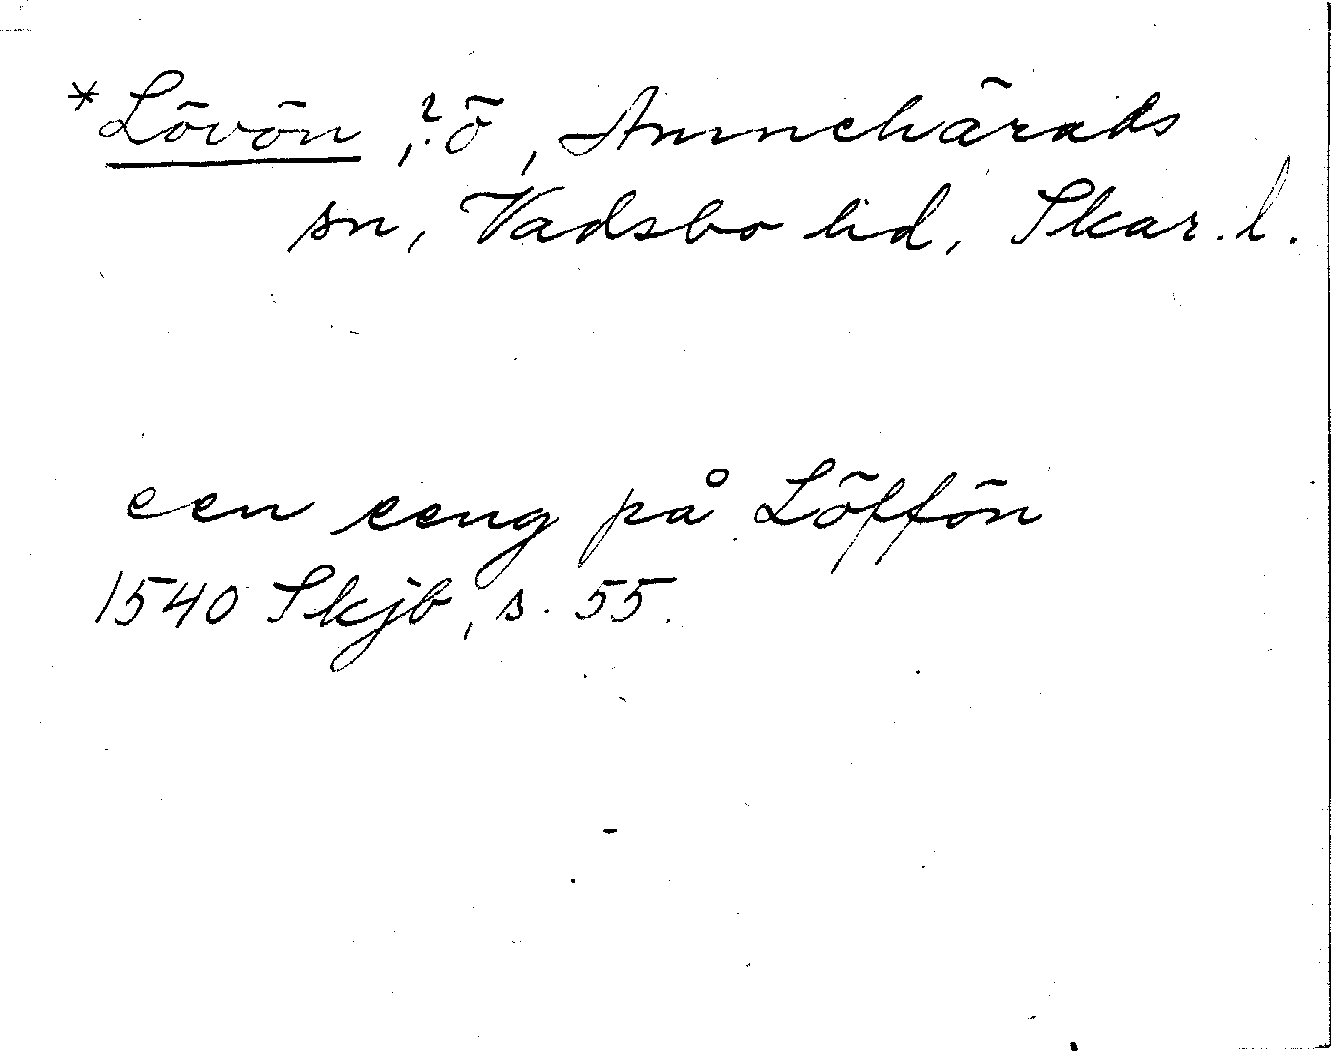 *Lövön, ? ö, Amnehärads
sn, Vadsbo hd, Skar. l.
een eeng på Löffön
1540 Skjb, s. 55.